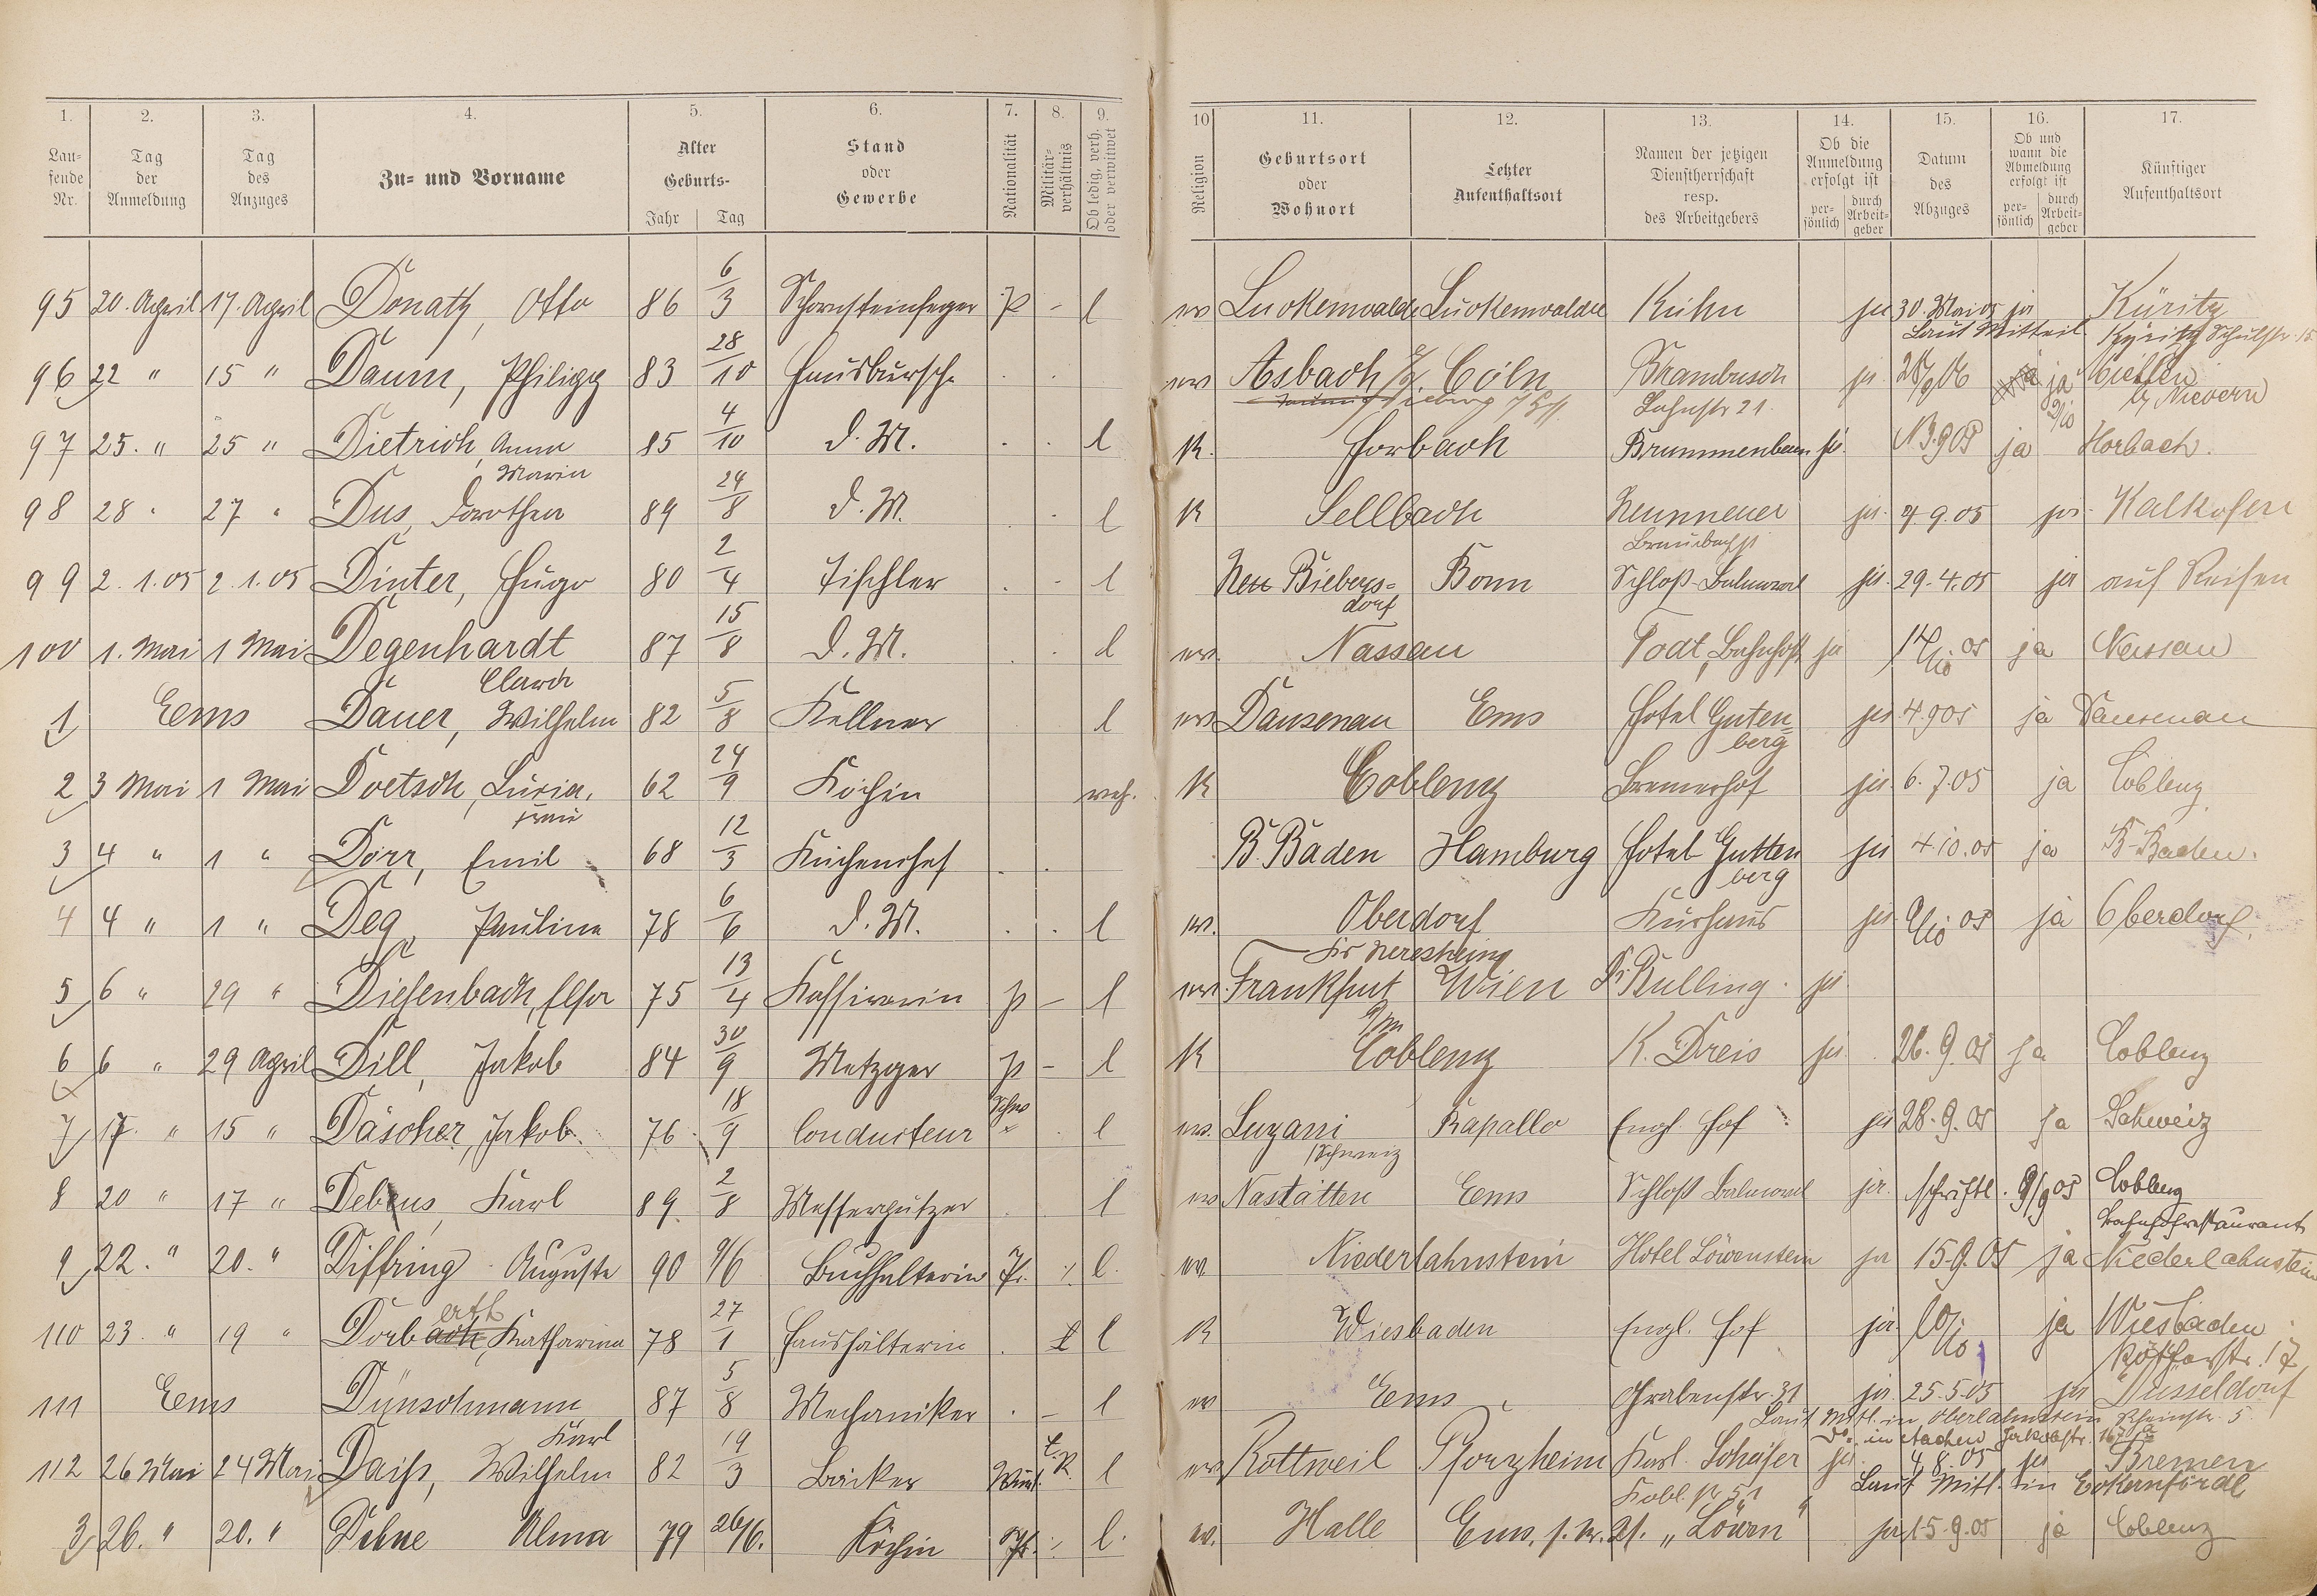 1. 2. 3. 4. 5. 6. 7. 8. 9. 10 11. 12. 13. 14. 15. 16. 17.
Laufende Nr. Tag der Anmeldung Tag des Anzuges Zu- und Vorname Alter Geburts- Jahr Tag Stand oder Gewerbe Nationalität Militärverhältnis Ob ledig, verh. oder verwitwet Religion Geburtsort oder Wohnort Letzter Aufenthaltsort Namen der jetzigen Dienstherrschaft resp. des Arbeitgebers Ob die Anmeldung erfolgt ist persönlich durch Arbeitgeber Datum des Abzuges Ob und wann die Abmeldung erfolgt ist persönlich durch Arbeitgeber Künftiger Aufenthaltsort
95 20. April 17. April Donath, Otto 86 6/3 Schornsteinfeger P - l ev Luckenwalde Luckenwalde Kuhn ja 30. Mai 05 ja Küritz
Laut Mitteil. Kyritz Schulstr. 15
96 22 " 15 " Daum, Philipp 83 28/10 Hausbursche ev Asbach Cöln Brambusch ja ja Miellen
Lahnstr 21. b/ Nievern
97 25. " 25 " Dietrich, Anna 85 4/10 d. M. l K. Horbach Brummenbaum ja 13.9 05 ja Horbach.
Maria
98 28 " 27 " Dus, Dorothea 89 24/8 d. M. l K Sellbach ja. 9.05 ja. Kalkofen
99 2. 1.05 2. 1.05 Dinter, Hugo 80 2/4 Tischler l Neu Biebers= Bonn Schloß Balmoral ja. 29.4.05 ja auf Reisen
dorf
100 1. Mai 1 Mai Degenhardt 87 15/8 d. M. l ev. Nassau Todt, Bahnhofstr ja 14/10 05 ja Nassau
Clara
1 Ems Dauer, Wilhelm 82 5/8 Kellner l ev Dausenau Ems Hotel Guten= ja 4.9 05 ja Dausenau
berg
2 3 Mai 1 Mai Doetsch, Luzia, 62 24/9 Köchin verh. K Coblenz Bremerhof ja. 6.7.05 ja Coblenz
Frau
3 4 " 1 " Dörr, Emil 68 12/3 Küchenchef B. Baden Hamburg Hotel Gutten ja 4.10.05 ja B-Baden.
berg
4 4 " 1 " Deg, Paulina 78 6/6 d. M. l ev. Oberdorf Kurhaus ja 05 ja Oberdorf.
Neresheim
5 6 " 29 " Diefenbach, Elsa 75 13/4 Kassirerin P - l ev. Frankfurt Wien Dr. Bulling. ja.
a/m
6 6 " 29 April Dill, Jakob 84 30/9 Metzger P - l K Coblenz K. Dreis ja. 26.9.05 ja Coblenz
7 17. " 15 " Däscher, Jakob. 76 18/9 Conducteur Schw l ev. Luzani Rapallo Engl. Hof ja 28.9.05 ja Schweiz
Schweiz
8 20 " 17 " Debus, Karl 89. 2/8 Messerputzer l ev Nastätten Ems Schloß Balmoral ja. schriftl. 9/9 05 Coblenz
Bahnhofrestaurant
9 22. " 20. " Diffring Auguste 90 9/6 Buchhalterin Pr. l. ev. Niederlahnstein Hotel Löwenstein ja 15.9.05 ja Niederlahnstein
ath
110 23. " 19 " Dorbach, Katharina 78 27/1 Haushälterin l K Wiesbaden Engl. Hof ja. ja Wiesbaden
111 Ems Dünschmann 87 5/8 Mechaniker - l ev Ems Grabenstr. 31 ja. 25.5.05 ja Düsseldorf
Karl Laut Mitl. in Oberlahnstein Rheinstr. 5
Do. in Aachen Jakobstr.
112 26 Mai 24 Mai Daiß, Wilhelm 82 19/3 Bäcker Würt. E.R. l ev. Rottweil Pforzheim Karl Schäfer ja 4.8.05 ja Bremen
Kobl. Str. 51 Laut Mitl. in Eckernförde
3 26. " 20. " Dehne Alma 79 26/6. Köchin Pr. l. ev. Halle Ems. "Löwen" ja 15.9.05 ja Coblenz